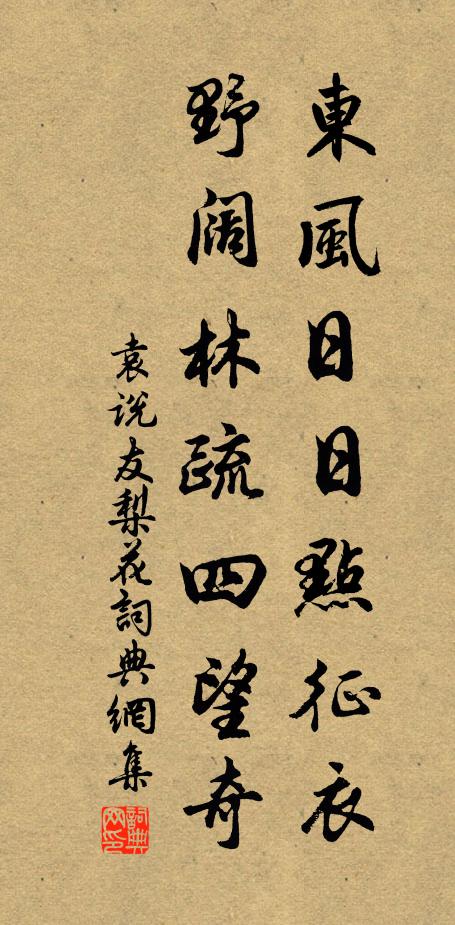 東風日日點征衣
野阔林疏四望奇
袁说友梨花詞典網集
詞典网印